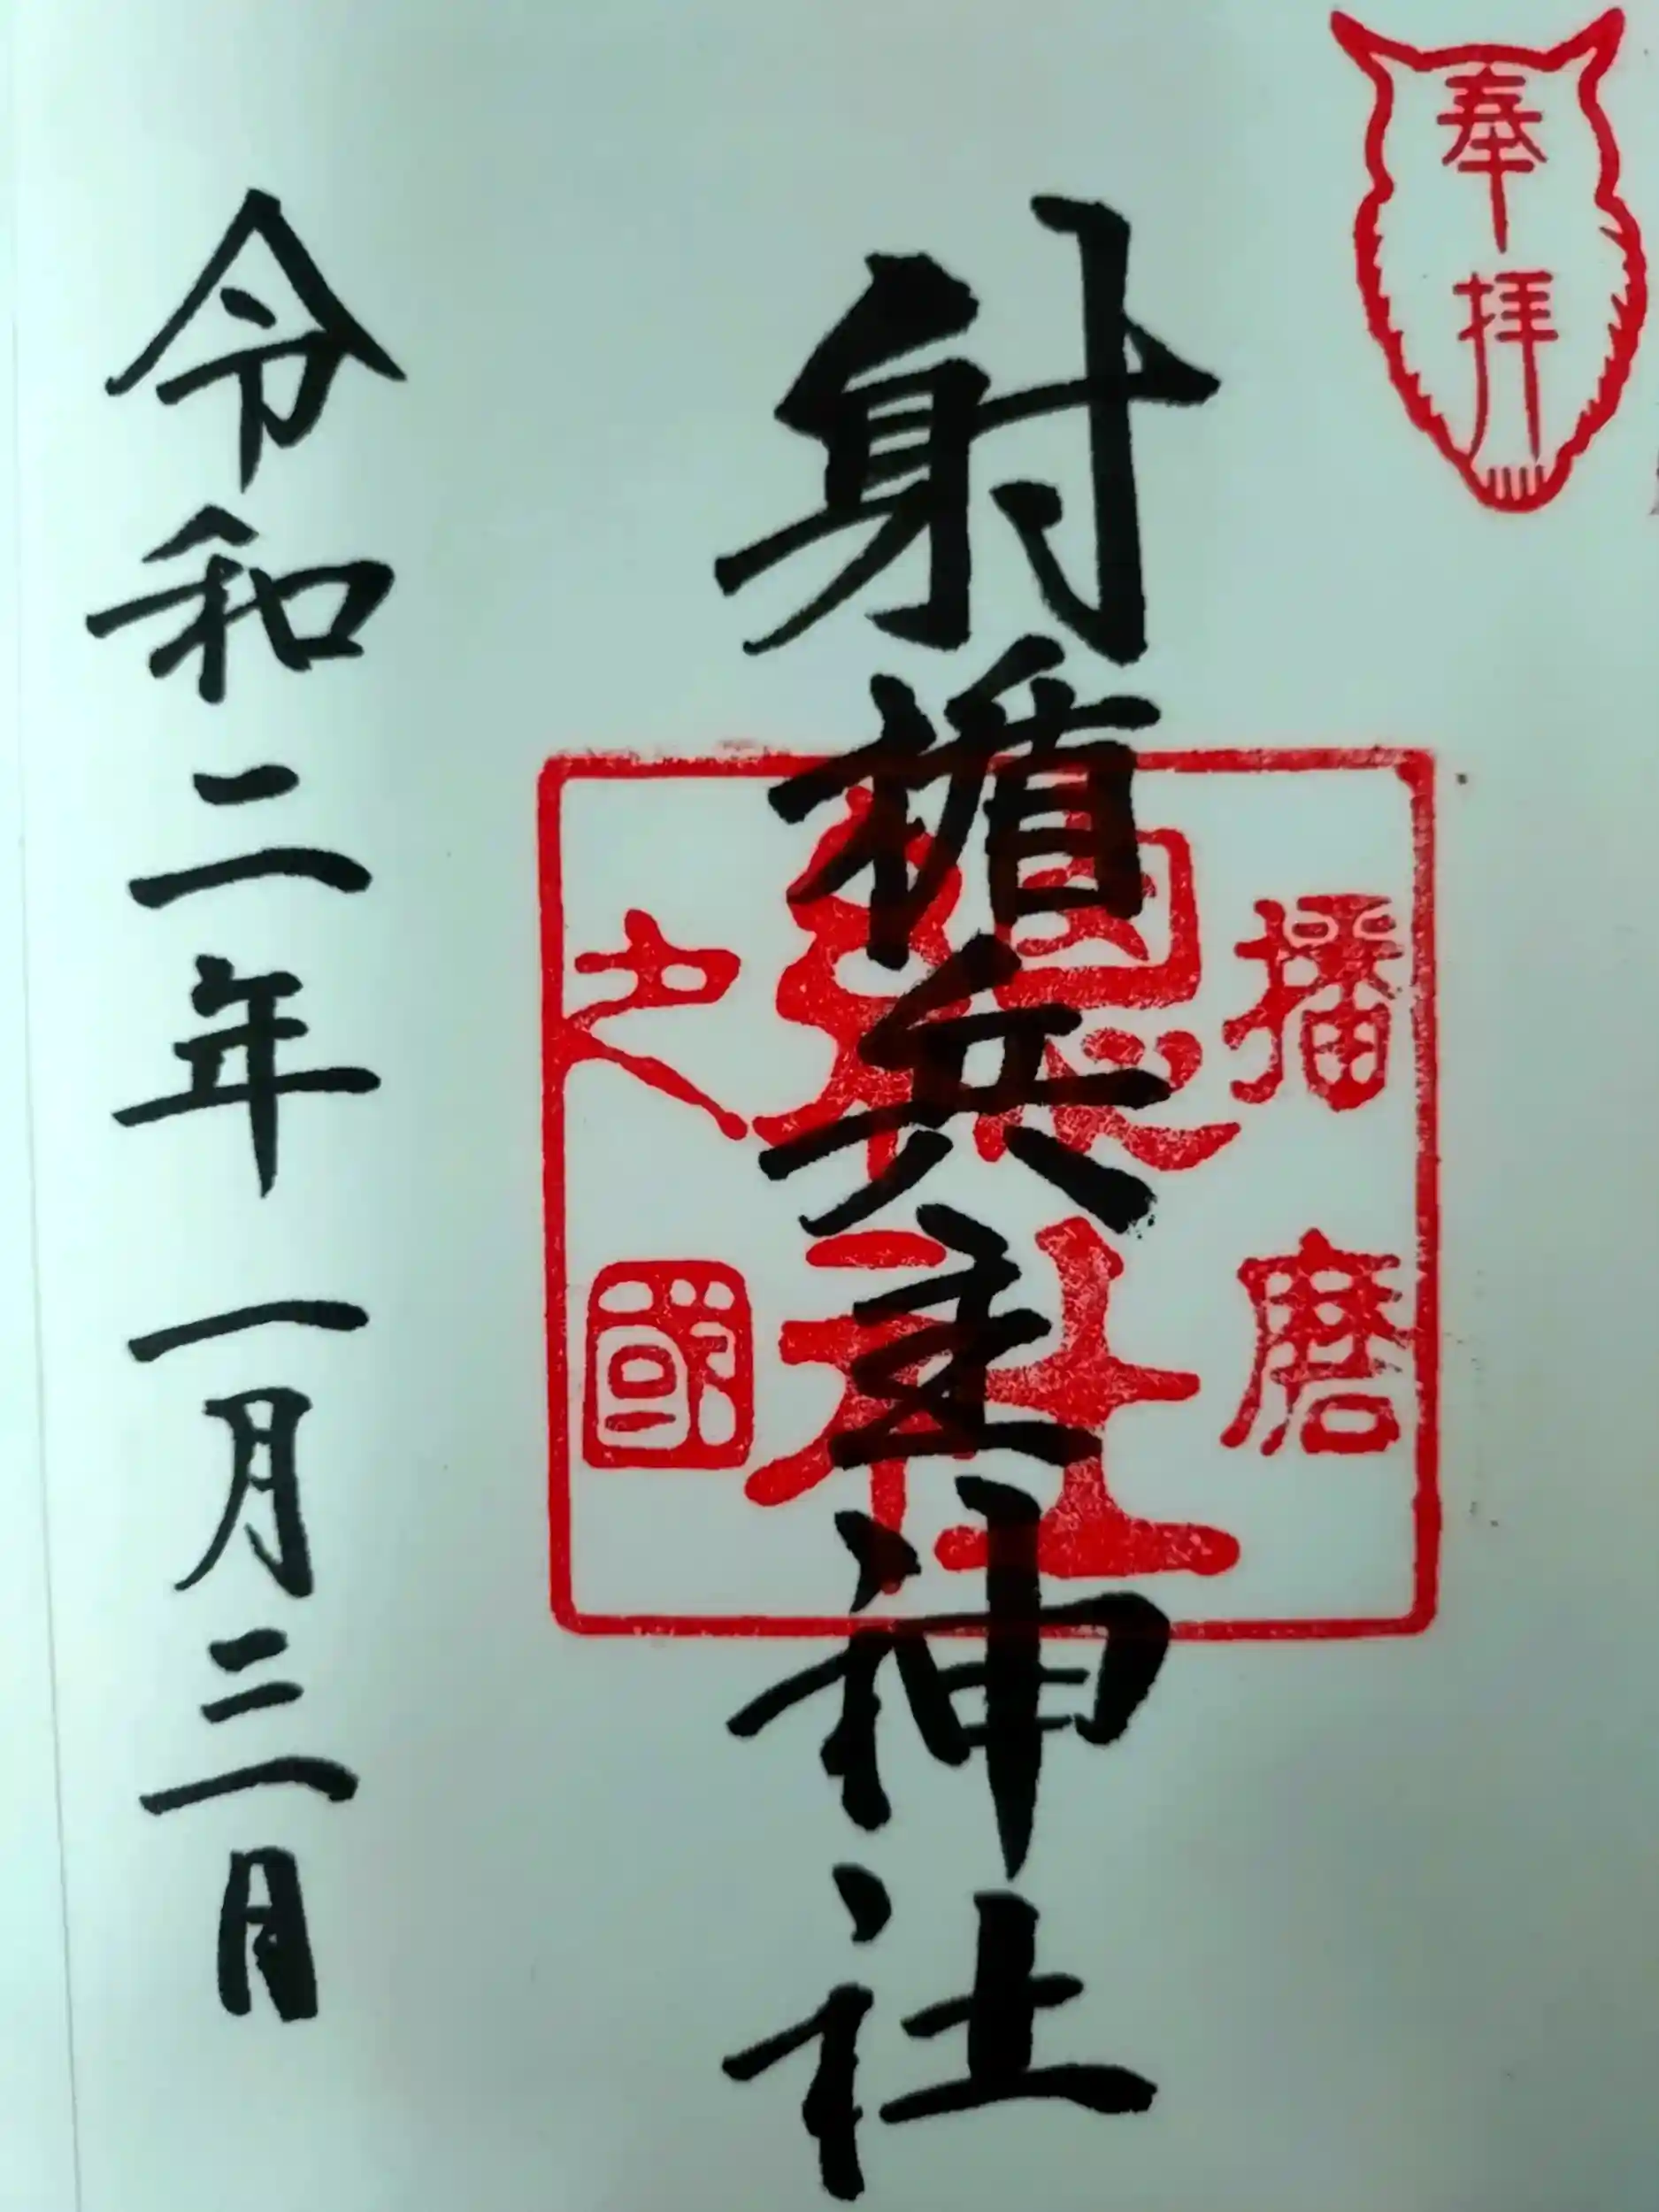 奉拝
射楯兵主神社
播磨
國総社
之國
令和二年一月三日